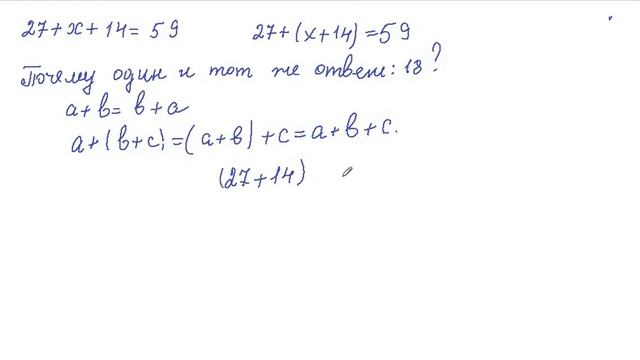 27+x+14= 59 27+(x+14)=59
Почему один и тот же ответ: 18?
a+b= b+a
a+(b+c)=(a+b)+c=a+b+c.
(27+14)